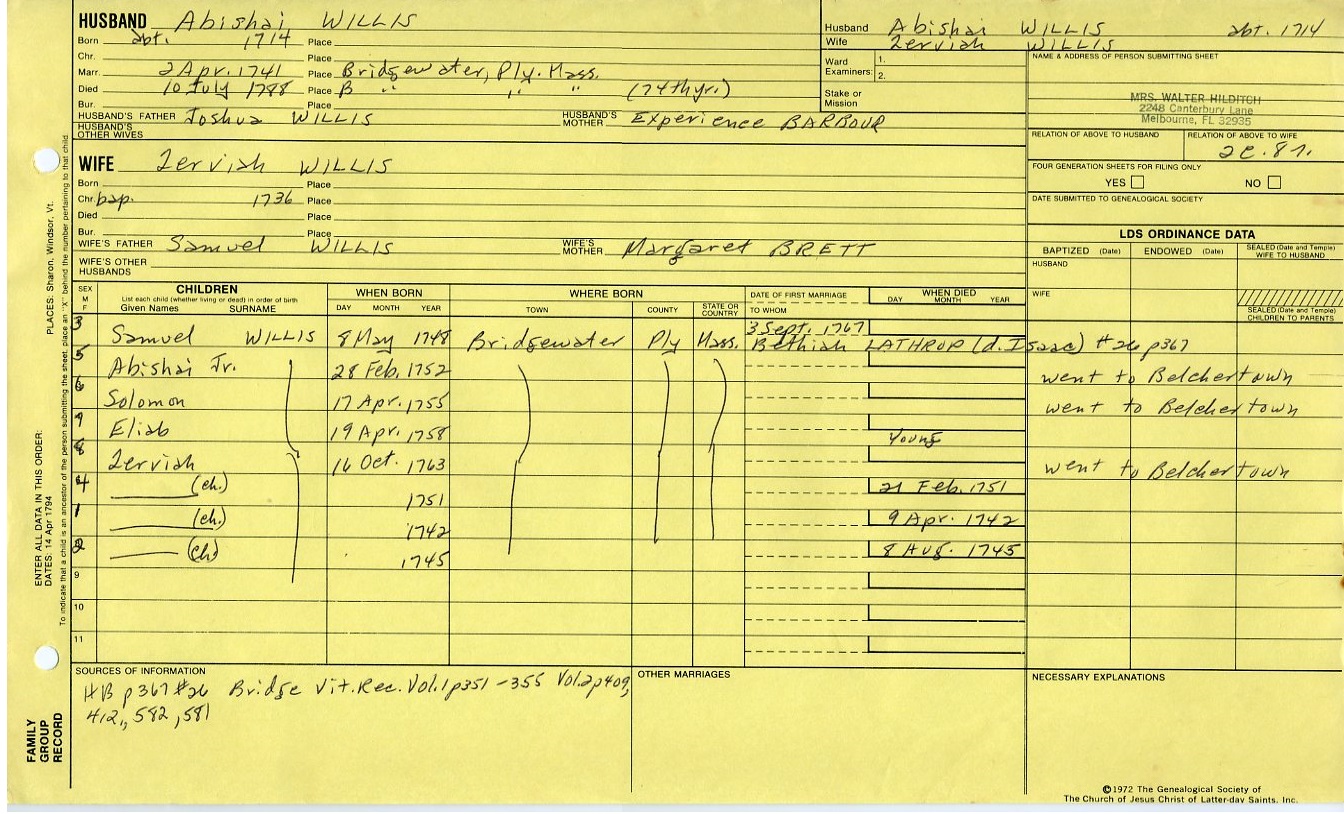 HUSBAND Abishai WILLIS
Born abt. 1714 Place
Chr. Place
Marr. 2 Apr. 1741 Place Bridgewater, Ply. Mass.
Died 10 July 1788 Place B " " " (74th yr.)
Bur. Place
HUSBAND'S FATHER Joshua WILLIS HUSBAND'S MOTHER Experience BARBOUR
HUSBAND'S OTHER WIVES
Husband Abishai WILLIS abt. 1714
Wife Zerviah WILLIS
Ward Examiners: 1.
2.
Stake or Mission
NAME & ADDRESS OF PERSON SUBMITTING SHEET
MRS. WALTER HILDITCH
2248 Canterbury Lane
Melbourne, FL 32935
RELATION OF ABOVE TO HUSBAND RELATION OF ABOVE TO WIFE
FOUR GENERATION SHEETS FOR FILING ONLY
YES NO
DATE SUBMITTED TO GENEALOGICAL SOCIETY
WIFE Zerviah WILLIS
Born Place
Chr. bap. 1736 Place
Died Place
Bur. Place
WIFE'S FATHER Samuel WILLIS WIFE'S MOTHER Margaret BRETT
WIFE'S OTHER HUSBANDS
LDS ORDINANCE DATA
BAPTIZED (Date) ENDOWED (Date) SEALED (Date and Temple) WIFE TO HUSBAND
HUSBAND
WIFE
SEALED (Date and Temple) CHILDREN TO PARENTS
SEX M F
CHILDREN
List each child (whether living or dead) in order of birth
Given Names SURNAME
WHEN BORN
DAY MONTH YEAR
WHERE BORN
TOWN COUNTY STATE OR COUNTRY
DATE OF FIRST MARRIAGE
TO WHOM
WHEN DIED
DAY MONTH YEAR
3 Samuel WILLIS 8 May 1748 Bridgewater Ply Mass. 3 Sept. 1767
Bethiah LATHROP (d. Isaac) #26 p367
5 Abishai Jr. 28 Feb. 1752 went to Belchertown
6 Solomon 17 Apr. 1755 went to Belchertown
7 Eliab 19 Apr. 1758 Young
8 Zerviah 16 Oct. 1763 went to Belchertown
4 (ch.) 1751 21 Feb. 1751
1 (ch.) 1742 9 Apr. 1742
2 (ch) 1745 8 Aug. 1745
9
10
11
SOURCES OF INFORMATION
HB p367 #26 Bridge Vit. Rec. Vol. 1 p351-355 Vol. 2 p409,
412, 582, 581
OTHER MARRIAGES
NECESSARY EXPLANATIONS
PLACES: Sharon, Windsor, Vt.
ENTER ALL DATA IN THIS ORDER:
DATES: 14 Apr 1794
To indicate that a child is an ancestor of the person submitting the sheet, place an "X" behind the number pertaining to that child.
FAMILY GROUP RECORD
©1972 The Genealogical Society of
The Church of Jesus Christ of Latter-day Saints, Inc.